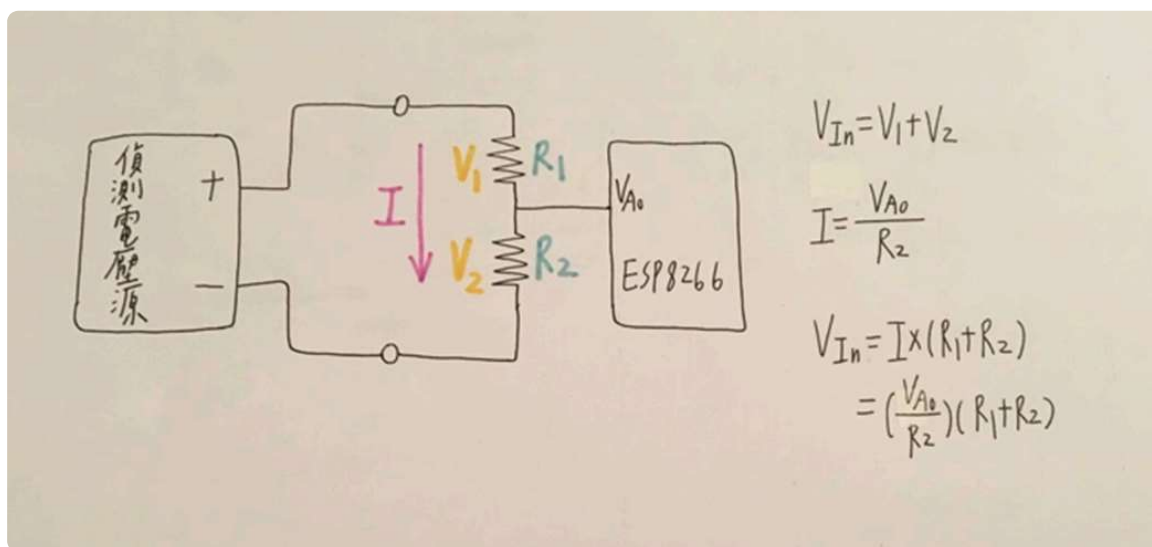 偵測電壓源
+
−
I
V₁
R₁
V₂
R₂
V_A₀
ESP8266
V_In=V₁+V₂
I=V_A₀/R₂
V_In=I×(R₁+R₂)
=(V_A₀/R₂)(R₁+R₂)